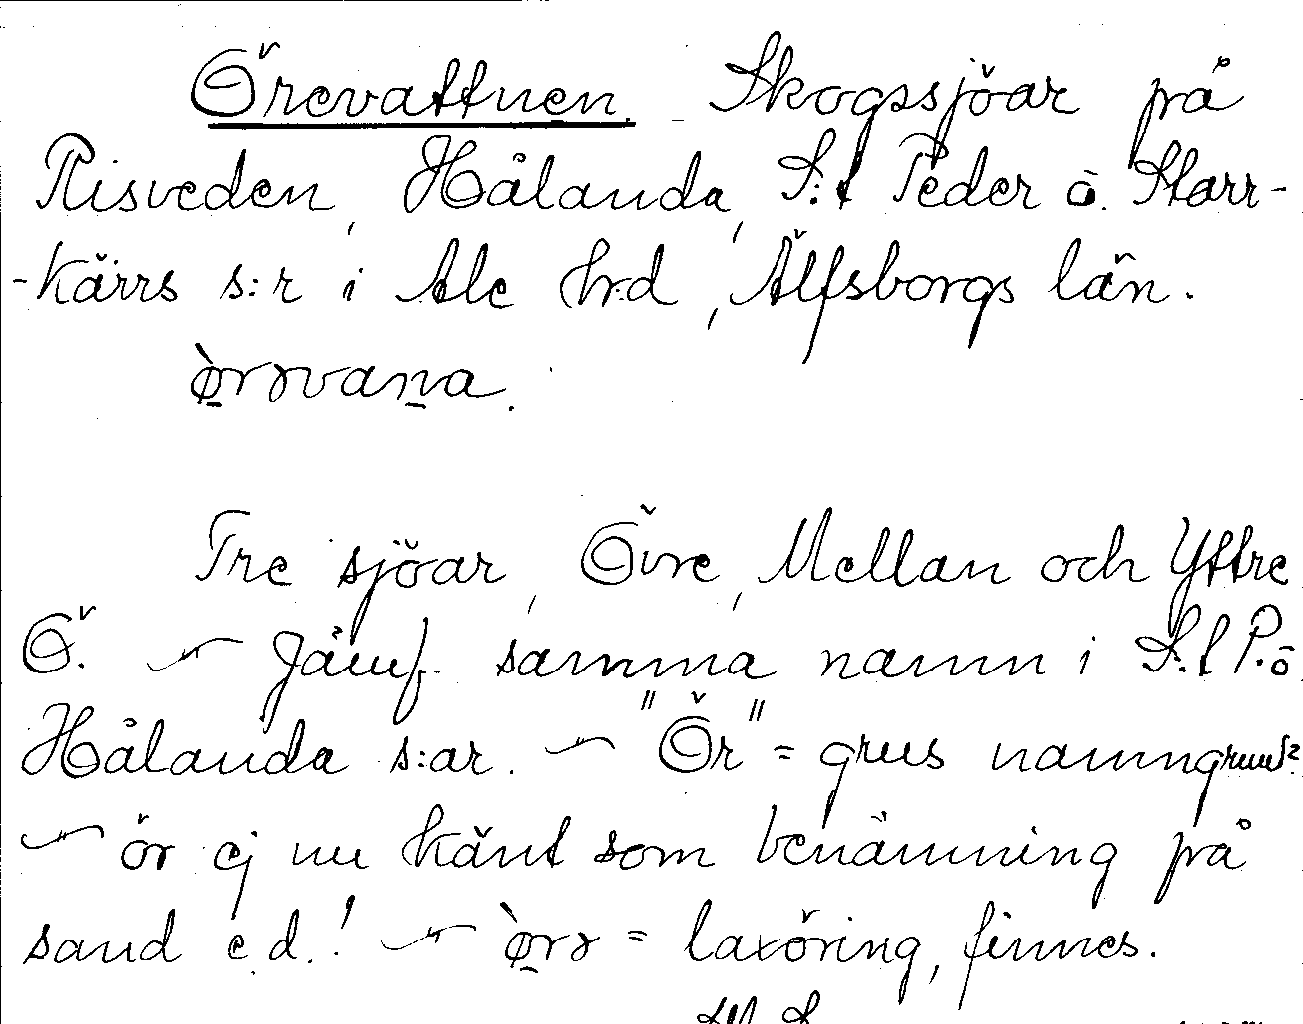 Örevattnen. Skogssjöar på
Risveden, Hålanda, S:t Peder o. Starr-
-kärrs s:r i Ale hrd, Älfsborgs län.
ø̱̀rəvan̲a.
Tre sjöar, Övre, Mellan och Yttre
Ö. ~ Jämf. samma namn i S:t P. o
Hålanda s:ar. ~ "Ör" = grus namngrund?
~ ör ej nu känt som benämning på
sand e.d.! ~ ø̱̀rə = laxöring, finnes.